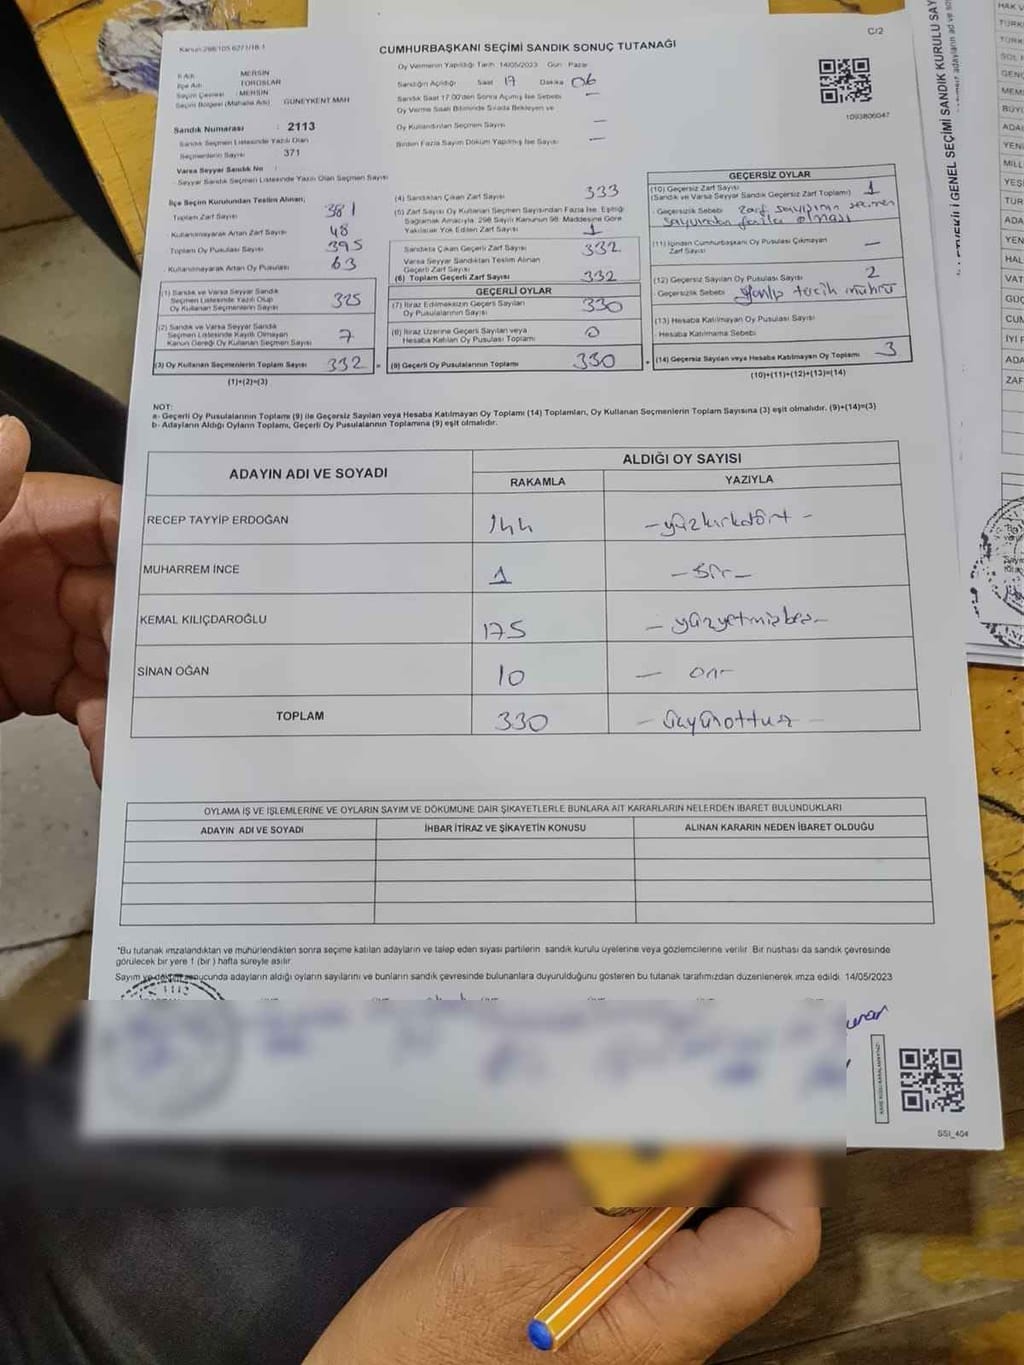 Kanun:298/105 6271/18-1
C/2
CUMHURBAŞKANI SEÇİMİ SANDIK SONUÇ TUTANAĞI
İl Adı : MERSİN
İlçe Adı : TOROSLAR
Seçim Çevresi : MERSİN
Seçim Bölgesi (Mahalle Adı) : GÜNEYKENT MAH
Sandık Numarası : 2113
Sandık Seçmen Listesinde Yazılı Olan
Seçmenlerin Sayısı : 371
Varsa Seyyar Sandık No :
- Seyyar Sandık Seçmen Listesinde Yazılı Olan Seçmen Sayısı
Oy Vermenin Yapıldığı Tarih: 14/05/2023 Gün: Pazar
Sandığın Açıldığı : Saat 17 Dakika 06
Sandık Saat 17.00'den Sonra Açılmış İse Sebebi —
Oy Verme Saati Bitiminde Sırada Bekleyen ve
Oy Kullandırılan Seçmen Sayısı —
Birden Fazla Sayım Döküm Yapılmış İse Sayısı —
1093806047
İlçe Seçim Kurulundan Teslim Alınan;
Toplam Zarf Sayısı 381
- Kullanılmayarak Artan Zarf Sayısı 48
Toplam Oy Pusulası Sayısı 395
- Kullanılmayarak Artan Oy Pusulası 63
(1) Sandık ve Varsa Seyyar Sandık
Seçmen Listesinde Yazılı Olup
Oy Kullanan Seçmenlerin Sayısı 325
(2) Sandık ve Varsa Seyyar Sandık
Seçmen Listesinde Kayıtlı Olmayan
Kanun Gereği Oy Kullanan Seçmen Sayısı 7
(3) Oy Kullanan Seçmenlerin Toplam Sayısı 332 =
(1)+(2)=(3)
(4) Sandıktan Çıkan Zarf Sayısı 333
(5) Zarf Sayısı Oy Kullanan Seçmen Sayısından Fazla İse, Eşitliği
Sağlamak Amacıyla, 298 Sayılı Kanunun 98. Maddesine Göre
Yakılarak Yok Edilen Zarf Sayısı 1
Sandıkta Çıkan Geçerli Zarf Sayısı 332
Varsa Seyyar Sandıktan Teslim Alınan
Geçerli Zarf Sayısı
(6) Toplam Geçerli Zarf Sayısı 332
GEÇERLİ OYLAR
(7) İtiraz Edilmeksizin Geçerli Sayılan
Oy Pusulalarının Sayısı 330
(8) İtiraz Üzerine Geçerli Sayılan veya
Hesaba Katılan Oy Pusulası Toplamı 0
(9) Geçerli Oy Pusulalarının Toplamı 330 +
GEÇERSİZ OYLAR
(10) Geçersiz Zarf Sayısı
(Sandık ve Varsa Seyyar Sandık Geçersiz Zarf Toplamı) 1
- Geçersizlik Sebebi Zarf sayısının seçmen
sayısından fazla olması
(11) İçinden Cumhurbaşkanı Oy Pusulası Çıkmayan
Zarf Sayısı —
(12) Geçersiz Sayılan Oy Pusulası Sayısı 2
- Geçersizlik Sebebi Yanlış tercih mührü
(13) Hesaba Katılmayan Oy Pusulası Sayısı
Hesaba Katılmama Sebebi
(14) Geçersiz Sayılan veya Hesaba Katılmayan Oy Toplamı 3
(10)+(11)+(12)+(13)=(14)
NOT:
a- Geçerli Oy Pusulalarının Toplamı (9) ile Geçersiz Sayılan veya Hesaba Katılmayan Oy Toplamı (14) Toplamları, Oy Kullanan Seçmenlerin Toplam Sayısına (3) eşit olmalıdır. (9)+(14)=(3)
b- Adayların Aldığı Oyların Toplamı, Geçerli Oy Pusulalarının Toplamına (9) eşit olmalıdır.
ADAYIN ADI VE SOYADI
ALDIĞI OY SAYISI
RAKAMLA YAZIYLA
RECEP TAYYİP ERDOĞAN 144 - yüzkırkdört -
MUHARREM İNCE 1 - Bir -
KEMAL KILIÇDAROĞLU 175 - yüzyetmişbeş -
SİNAN OĞAN 10 - on -
TOPLAM 330 - üçyüzottuz -
OYLAMA İŞ VE İŞLEMLERİNE VE OYLARIN SAYIM VE DÖKÜMÜNE DAİR ŞİKAYETLERLE BUNLARA AİT KARARLARIN NELERDEN İBARET BULUNDUKLARI
ADAYIN ADI VE SOYADI İHBAR İTİRAZ VE ŞİKAYETİN KONUSU ALINAN KARARIN NEDEN İBARET OLDUĞU
*Bu tutanak imzalandıktan ve mühürlendikten sonra seçime katılan adayların ve talep eden siyasi partilerin sandık kurulu üyelerine veya gözlemcilerine verilir. Bir nüshası da sandık çevresinde
görülecek bir yere 1 (bir) hafta süreyle asılır.
Sayım ve döküm sonucunda adayların aldığı oyların sayılarını ve bunların sandık çevresinde bulunanlara duyurulduğunu gösteren bu tutanak tarafımızdan düzenlenerek imza edildi. 14/05/2023
SSI_404